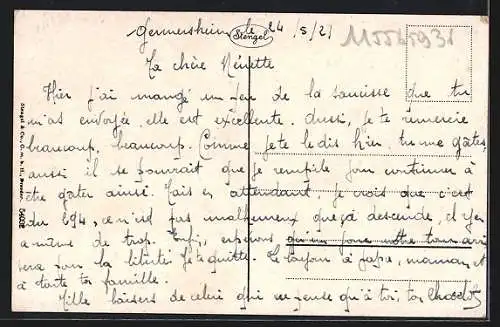 Germersheim, le 24/5/21
Stengel
Ma chère Ninette
Hier j'ai mangé un peu de la saucisse que tu
m'as envoyée, elle est excellente. Aussi, je te remercie
beaucoup, beaucoup. Comme je te le dis hier, tu me gâtes,
aussi il se pourrait que je rempile pour continuer à
être gâter ainsi. Mais en attendant, je crois que c'est
du 194, ce n'est pas malheureux que ça descende, il y en
a même de trop. Enfin, espérons qu'un jour notre tour arri
vera pour la liberté. Je te quitte. Le bonjour à papa, maman, et
à toute ta famille.
Mille baisers de celui qui ne pense qu'à toi, ton
Stengel & Co., G. m. b. H., Dresden.